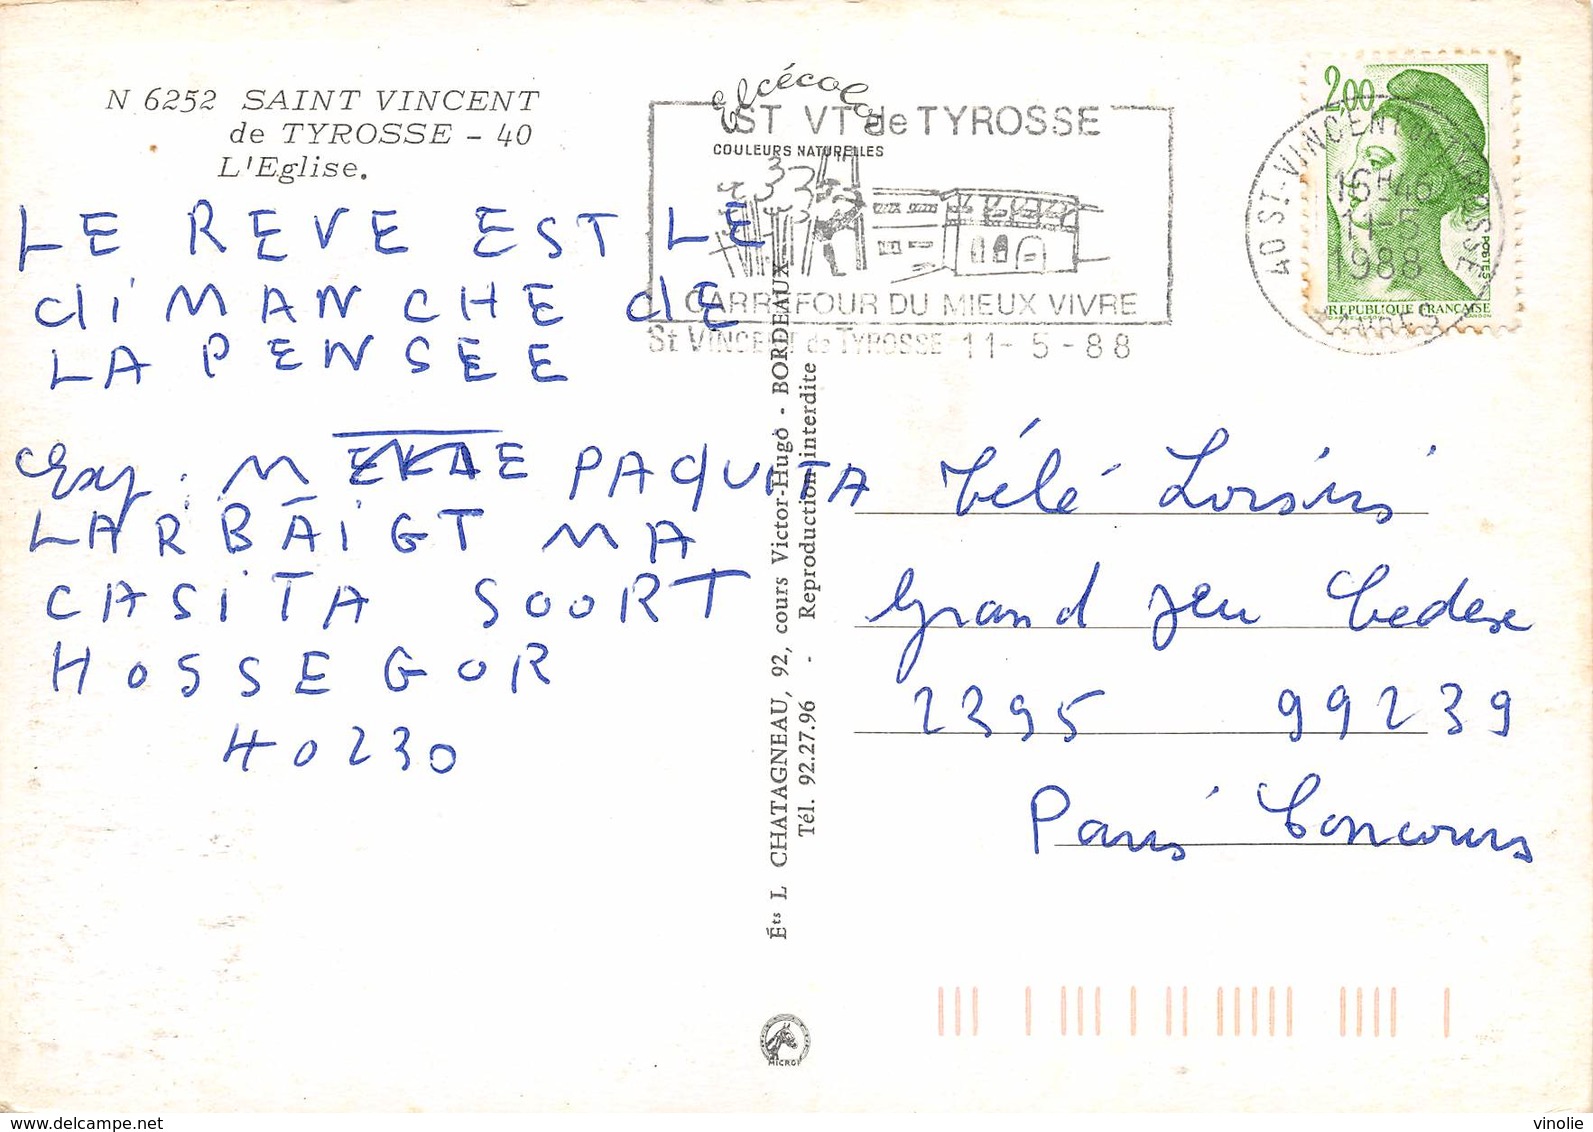 N 6252 SAINT VINCENT
de TYROSSE - 40
L'Eglise.
LE REVE EST LE
diMANCHE dE
LA PENSEE
Exp. MME PAQUITA
LARBAIGT MA
CASITA SOORT
HOSSEGOR
40230
Elcécolor
COULEURS NATURELLES
ST VT de TYROSSE
CARREFOUR DU MIEUX VIVRE
St VINCENT de TYROSSE 11-5-88
2,00
POSTES
REPUBLIQUE FRANÇAISE
40 ST-VINCENT-DE-TYROSSE
16H46
11-5
1988
Éts L CHATAGNEAU, 92, cours Victor-Hugo - BORDEAUX
Tél. 92.27.96 - Reproduction interdite
Télé Loisirs
Grand jeu Cedex
2395 99239
Paris Concours
MICRO
www.delcampe.net
vinolie